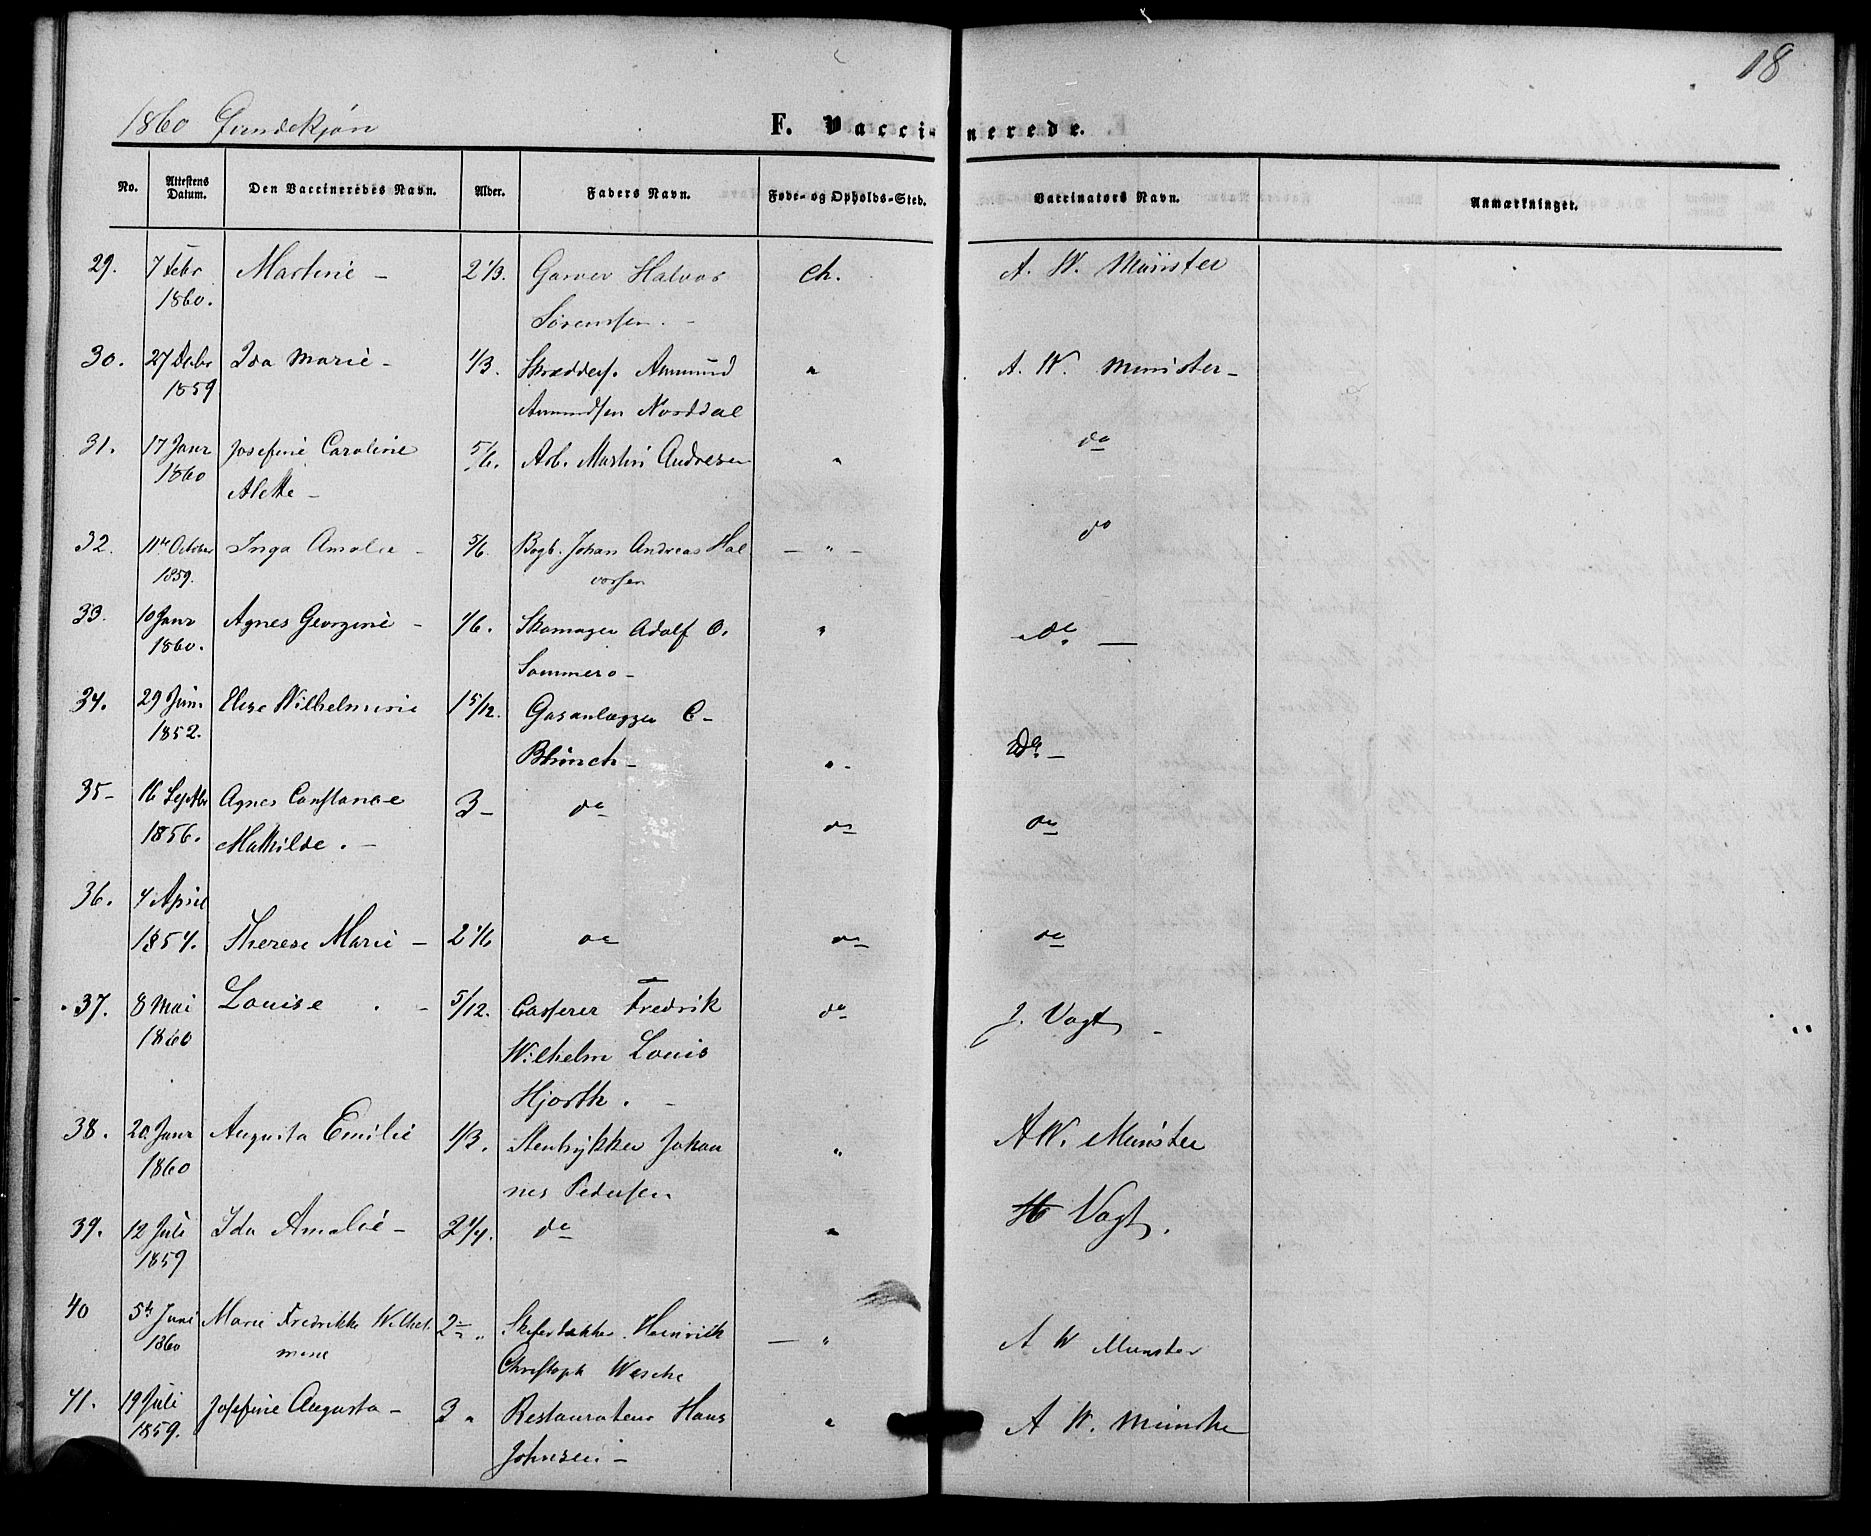 18
1860 Qvindekjøn
F. Vaccinerede.
No. Attestens Datum. Den Vaccineredes Navn. Alder. Faders Navn. Føde- og Opholds-Sted. Vaccinators Navn. Anmærkninger.
29. 7 Febr Martine - 2 1/3. Garver Halvor Ch. A. W. Münster
1860. Sørenssen. -
30. 27 Decbr Ida Marie - 1/3. Skrædders. Ammund " A. W. Münster -
1859 Amundsen Norddal
31. 17 Janr Josefine Caroline 5/6. Arb. Martin Andresen " do
1860 Alette -
32. 11te October Inga Amalie - 5/6. Bogb. Johan Andreas Hal - " - do
1859. vorsen
33. 10 Janr Agnes Georgine - 1/6. Skomager Adolf O. " do -
1860. Sommero -
34. 29 Juni Elise Wilhelmine 1 5/12. Gasanlægger C -
1852. Blünch - " - do -
35 - 16 Septbr Agnes Constance 3 - do do do
1856. Mathilde. -
36. 4 April
1854. Therese Marie - 2 1/6 do do do
37. 8 Mai Louise - 5/12. Casserer Fredrik do J. Vogt -
1860 Wilhelm Louis
Hjorth. -
38. 20 Janr Augusta Emilie 1/3. Stentrykker Johan " A W. Münster
1860 nes Pedersen
39. 12 Juli Ida Amalie - 2 1/4. do " Vogt.
1859
40 5te Juni Marie Fredrikke Wilhel 2 - " Skifertækker Heinrich - " A W Münster
1860 mine Christoph Wesche
41. 19 Juli Josefine Augusta - 3 " Restaurateur Hans " A W. Münster
1859. Johnsen -